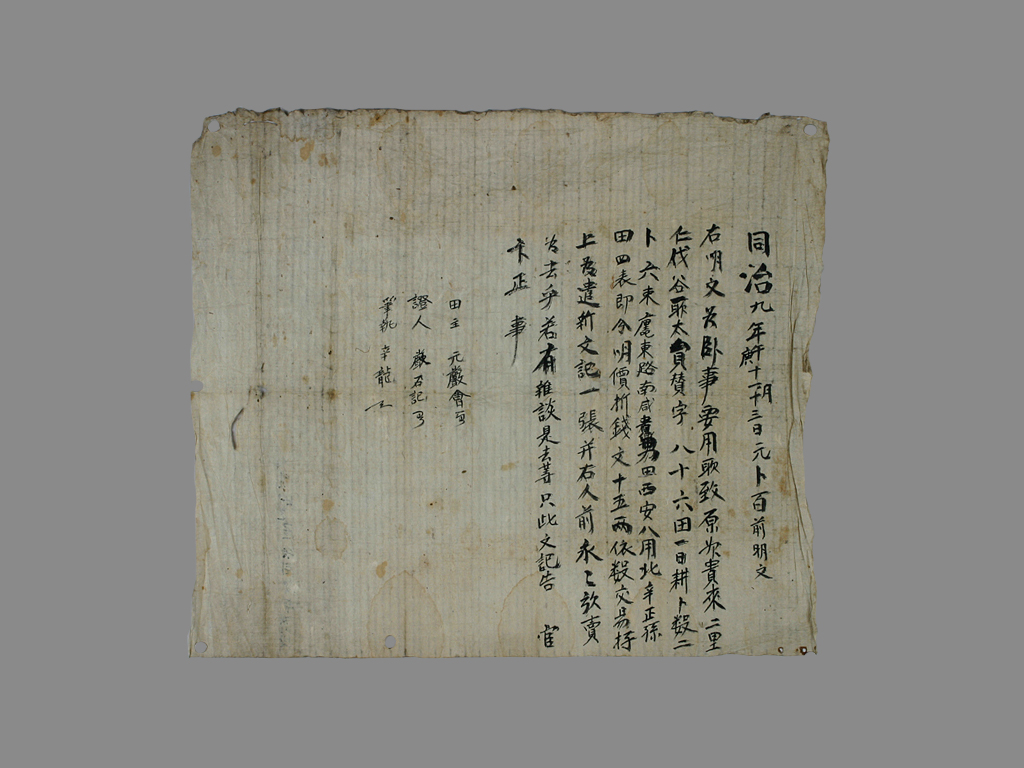 同治九年庚午十一月十三日元卜百前明文
右明文爲臥事要用所致原次貴來二里
仁伐谷員贊字八十六田一日耕卜數二
卜六束東路南咸田西安八用北辛正孫
田四表即今明價折錢文十五兩依數交易捧
上爲遣新文記一張幷右人前永永放賣
爲去乎若有雜談是去等只此文記告官
卞正事
田主 元嚴會
證人 嚴石記
筆執 辛龍